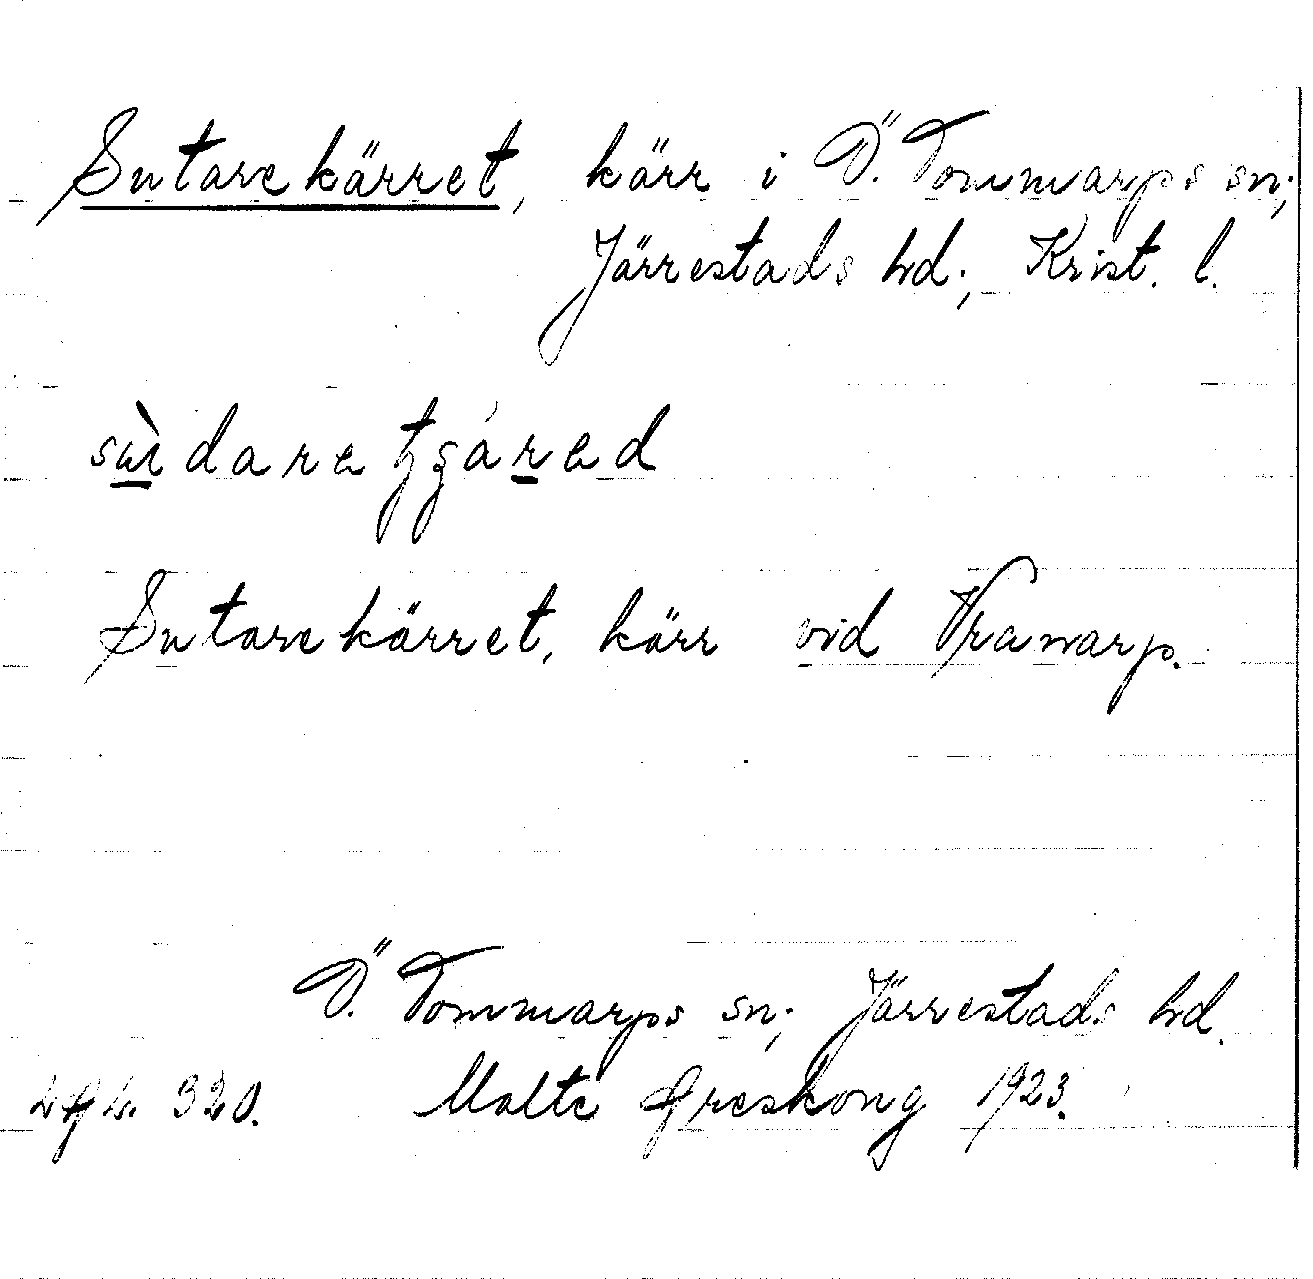 Sutarekärret, kärr i Ö. Tommarps sn;
Järrestads hd; Krist. l.
Sutarekärret, kärr vid Vranarp.
Ö. Tommarps sn; Järrestads hd.
320. Malte Areskong 1923.